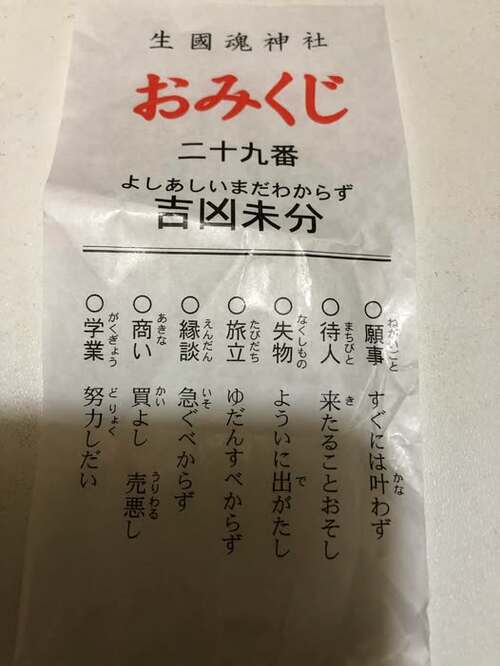 生國魂神社
おみくじ
二十九番
よしあしいまだわからず
吉凶未分
○願事 すぐには叶わず
ねがいごと かな
○待人 来たることおそし
まちびと き
○失物 よういに出がたし
なくしもの で
○旅立 ゆだんすべからず
たびだち
○縁談 急ぐべからず
えんだん いそ
○商い 買よし 売悪し
あきな かい うりわる
○学業 努力しだい
がくぎょう どりょく